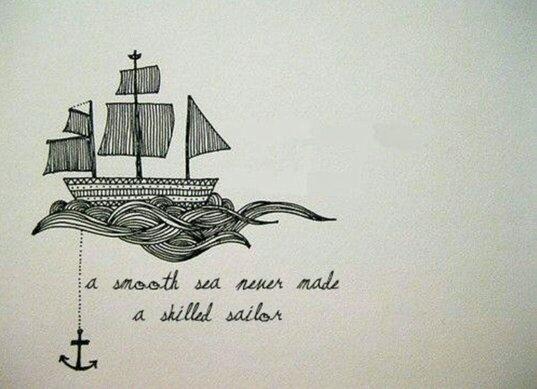 a smooth sea never made
a skilled sailor